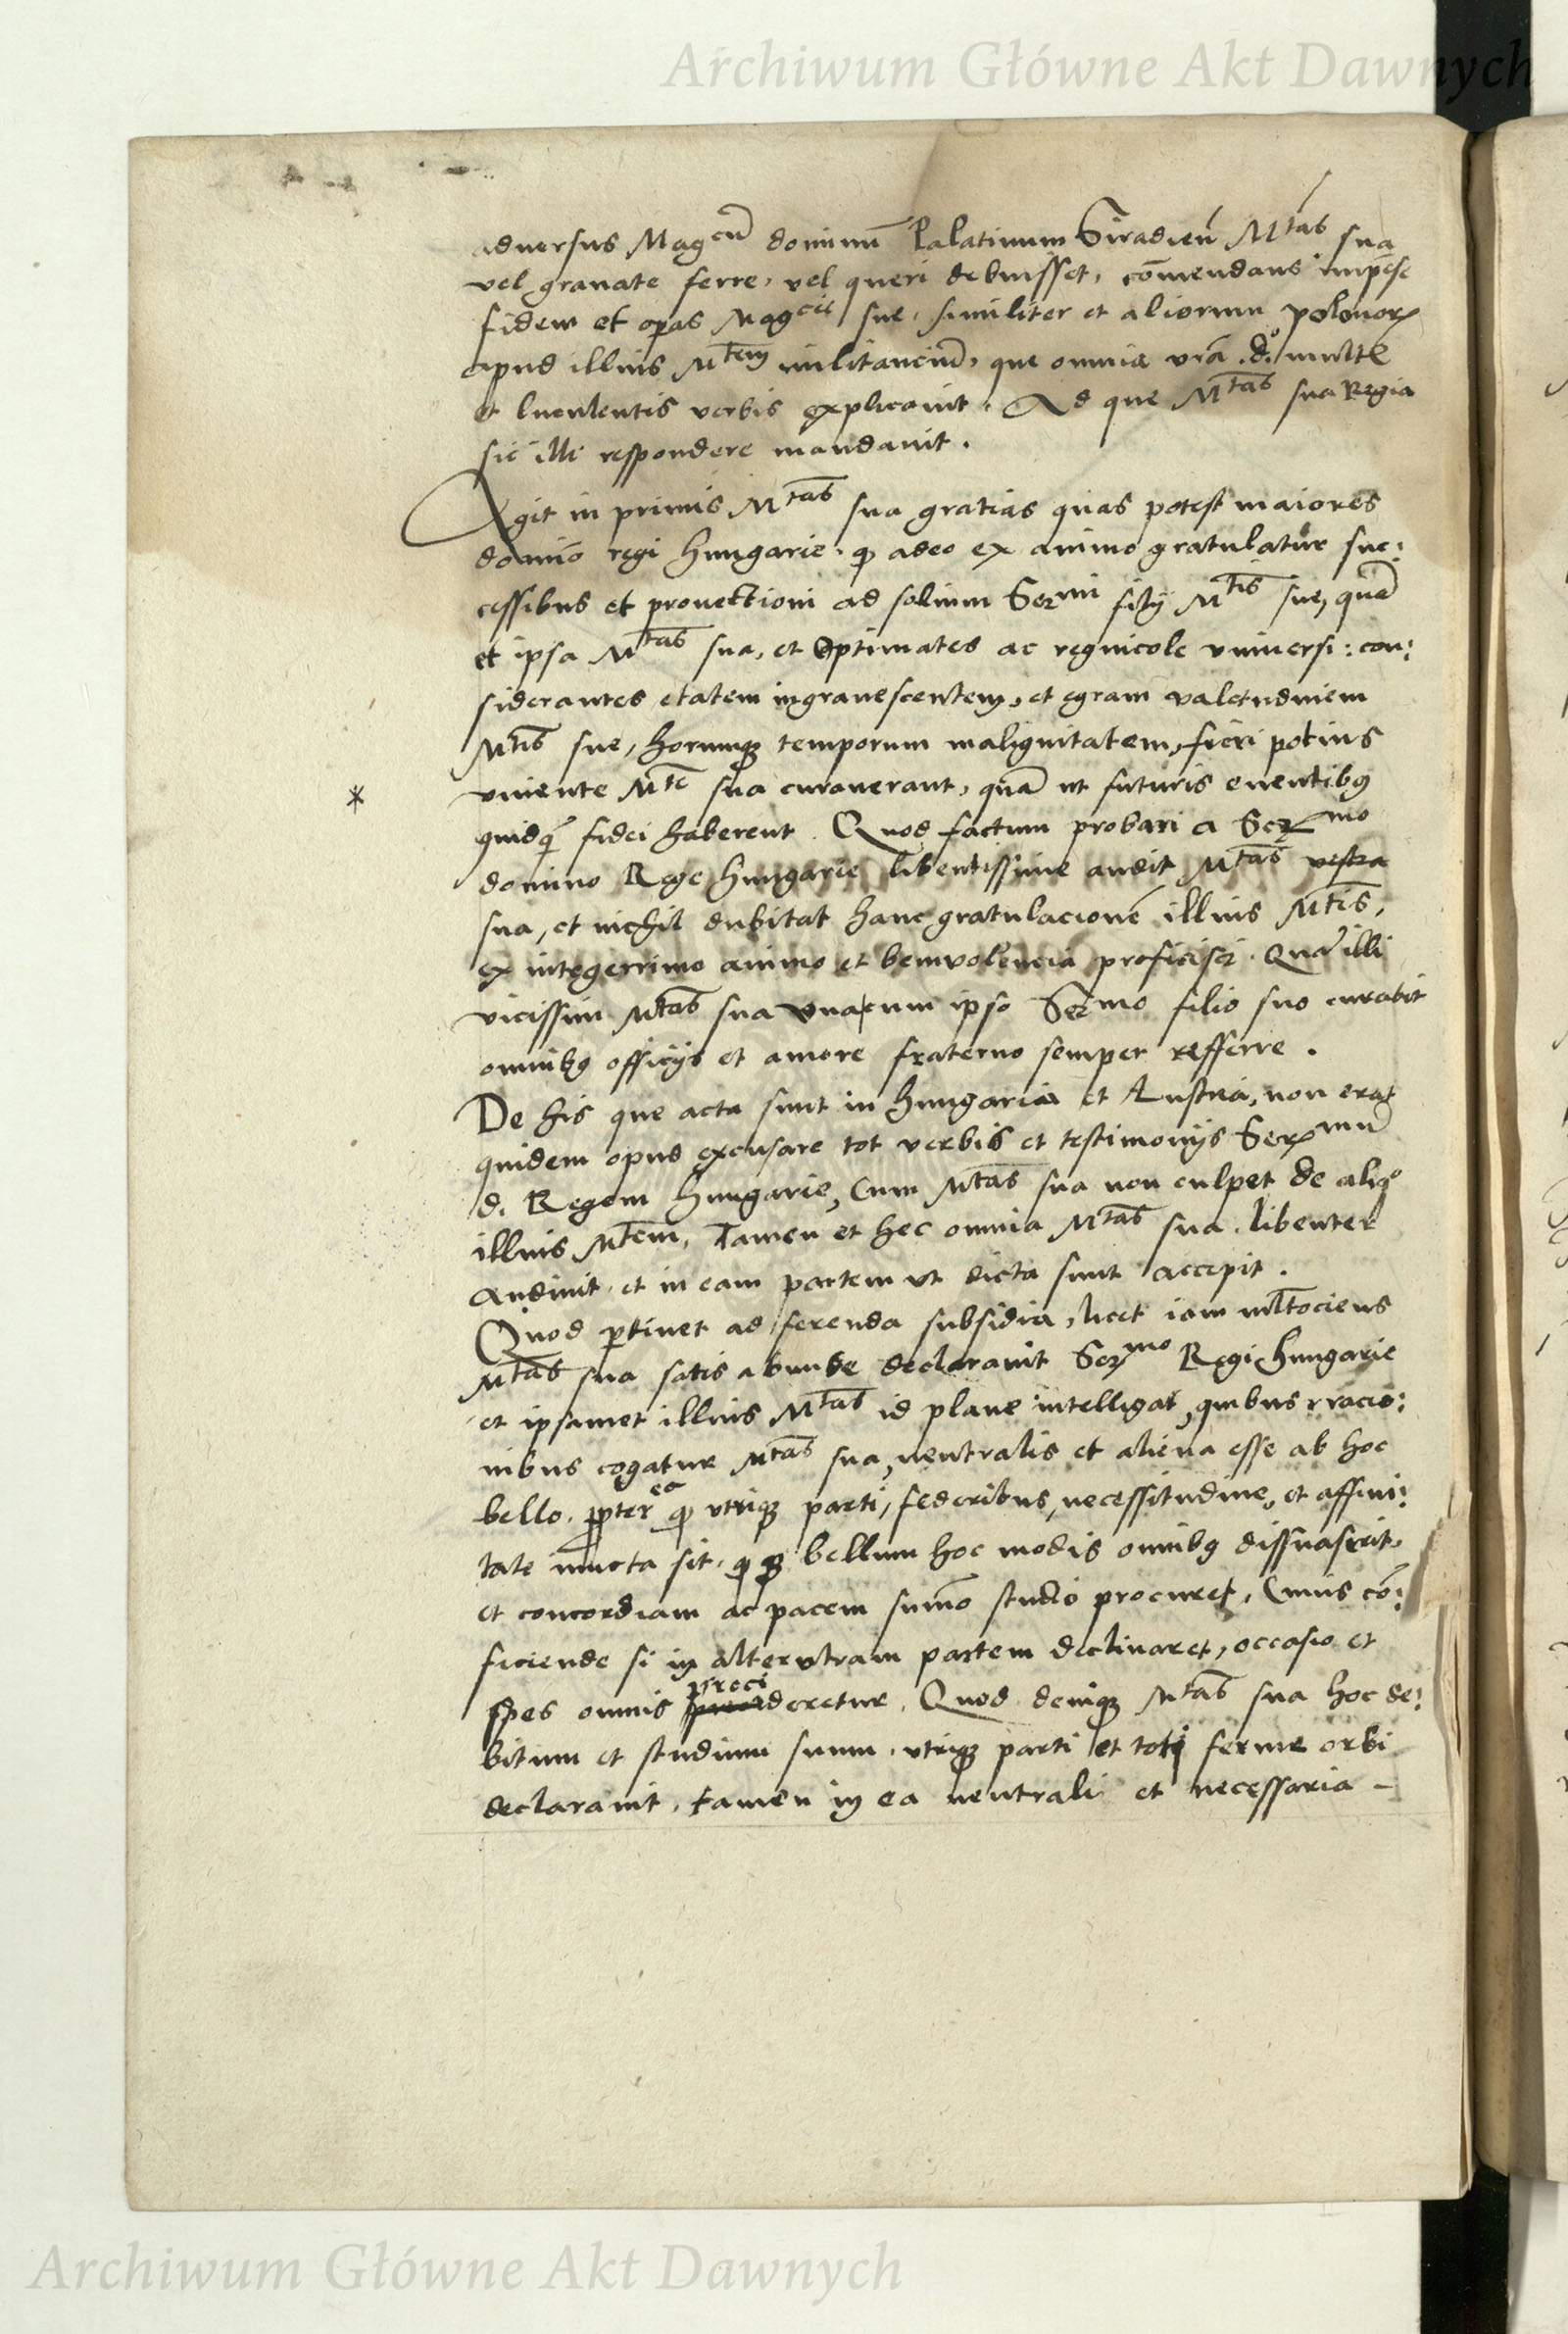 Archiwum Główne Akt Dawnych
adversus Mag^cu̅ dominu̅ Palatinum Siradien̅ M^tas sua
vel gravate ferre, vel queri debuisset, co̅mendans impe̅se
fidem et op̱as Mag^cie sue, similiter et aliorum polonoꝝ
apud illius M^tem militanciu̅, que omnia vr̅a .d^o. multis
et luculentis verbis explicavit. Ad que M^tas sua Regia
sic illi respondere mandavit.
Agit in primis M^tas sua gratias quas potest maiores
domi̅o regi Hungarie, ꝙ adeo ex animo gratulatur suc:
cessibus et provectioni ad solium Ser^mi filij M^tis sue, qua̅
et ipsa M^tas sua, et Optimates ac regnicole universi: con:
siderantes etatem ingravescentem, et egram valetudinem
M^tis sue, horumqꝫ temporum malignitatem, fieri potius
vivente M^te sua curaverant, qua̅ ut futuris eventibꝰ
quidq̅ fidei haberent. Quod factum probari a Ser^mo
domino Rege Hungarie libentissime audit M^tas vestra
sua, et nichil dubitat hanc gratulacione̅ illius M^tis,
ex integerrimo animo et benivolencia proficisci. Qua̅ illi
vicissim M^tas sua vna cum ipso Ser^mo filio suo curabit
omnibꝰ officijs et amore fraterno semper refferre.
De his que acta sunt in Hungaria et Austria, non erat
quidem opus excusare tot verbis et testimonijs Ser^mu̅
d. Regem Hungarie, Cum M^tas sua non culpet de aliq^o
illius M^tem, Tamen et hec omnia M^tas sua libenter
audivit et in eam partem ut dicta sunt accepit.
Quod p̱tinet ad ferenda subsidia, licet iam ml̅tociens
M^tas sua satis abunde declaravit Ser^mo Regi Hungarie
et ipsamet illius M^tas id plane intelligat, quibus racio:
nibus cogatur M^tas sua, neutralis et aliena esse ab hoc
bello. ꝓpter ea ꝙ vtriqꝫ parti, federibus, necessitudine, et affini:
tate iuncta sit, ꝙqꝫ bellum hoc modis omnibꝰ dissuaserit,
et concordiam ac pacem sum̅o studio procuret, Cuius co̅:
ficiende si in alterutram partem declinaret, occasio et
spes omnis preci deretur. Quod deniqꝫ M^tas sua hoc de:
bitum et studium suum, vtriqꝫ parti et toti ferme orbi
declaravit, tamen in ea neutrali et necessaria –
Archiwum Główne Akt Dawnych